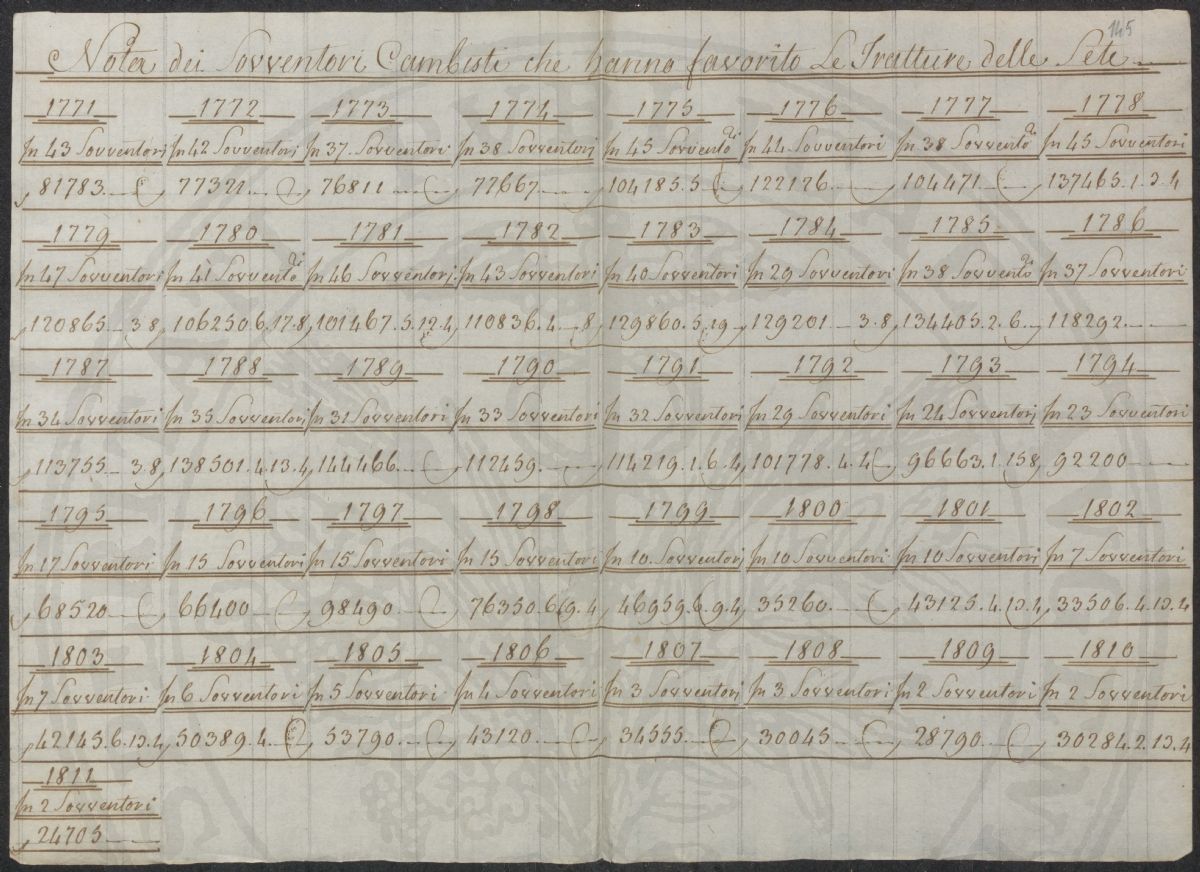 145
Nota dei Sovventori Cambisti che hanno favorito Le Tratture delle Sete
1771 1772 1773 1774 1775 1776 1777 1778
In 43 Sovventori In 42 Sovventorj In 37. Sovventori In 38 Sovventorj In 45 Sovvento.ri In 44 Sovventori In 38 Sovvento.ri In 45 Sovventori
81783. 77322. 76811 77667. 104185.5 122126. 104471. 137465.1.3.4
1779 1780 1781 1782 1783 1784 1785 1786
In 47 Sovventori In 41 Sovvento.ri In 46 Sovventorj In 43 Sovventori In 40 Sovventori In 29 Sovventori In 38 Sovvento.ri In 37 Sovventori
120865.—3.8 106250.6.17.8 101467.5.12.4 110836.4.—8 129860.5.19— 129201—3.8 134405.2.6.— 118292.
1787 1788 1789 1790 1791 1792 1793 1794
In 34 Sovventori In 35 Sovventori In 31 Sovventori In 33 Sovventori In 32 Sovventorj In 29 Sovventori In 24 Sovventorj In 23 Sovventori
113755—3.8 138501.4.13.4 144466. 112459. 114219.1.6.4 101778.4.4 96663.1.15.8 92200
1795 1796 1797 1798 1799 1800 1801 1802
In 17 Sovventori In 15 Sovventori In 15 Sovventori In 15 Sovventori In 10 Sovventorj In 10 Sovventori In 10 Sovventori In 7 Sovventori
68520 66400 98490. 76350.6.9.4 46959.6.9.4 35260. 43125.4.13.4 33506.4.13.4
1803 1804 1805 1806 1807 1808 1809 1810
In 7 Sovventori In 6 Sovventori In 5 Sovventori In 4 Sovventori In 3 Sovventorj In 3 Sovventori In 2 Sovventori In 2 Sovventori
42145.6.13.4 50389.4. 53790. 43120. 34555. 30045 28790. 30284.2.13.4
1811
In 2 Sovventori
24705